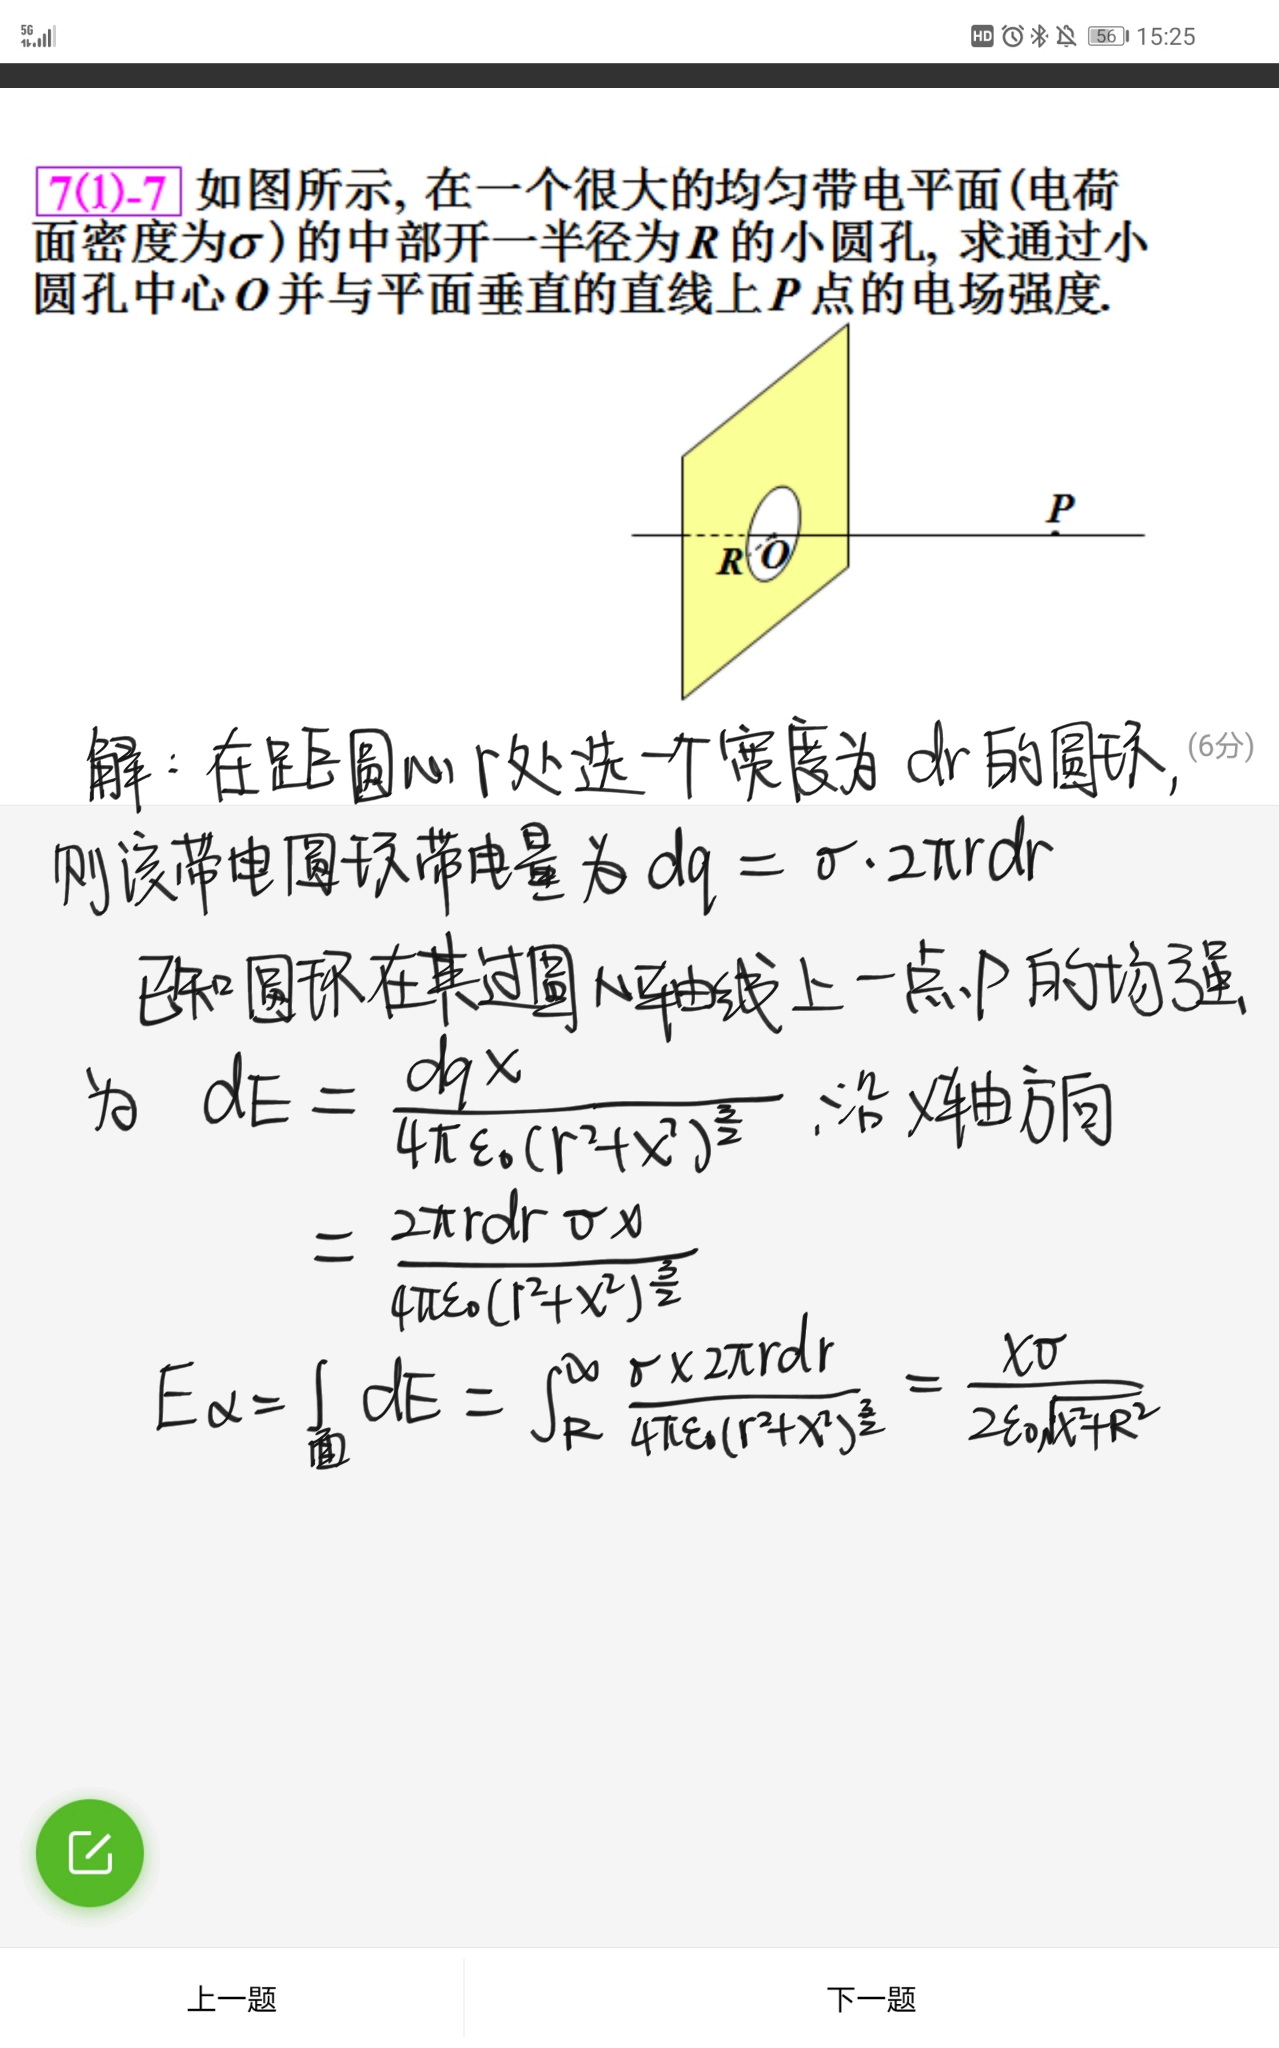 5G
HD 56 15:25
7(1)-7 如图所示, 在一个很大的均匀带电平面(电荷
面密度为σ)的中部开一半径为R的小圆孔, 求通过小
圆孔中心O并与平面垂直的直线上P点的电场强度.
P
R O
解：在距圆心r处选一个宽度为dr的圆环, (6分)
则该带电圆环带电量为dq = σ·2πrdr
已知圆环在其过圆心轴线上一点P的场强
为 dE = dq x / 4πε₀(r²+x²)^(3/2) ,沿x轴方向
= 2πrdr σx / 4πε₀(r²+x²)^(3/2)
Eα = ∫面 dE = ∫_R^∞ σx2πrdr / 4πε₀(r²+x²)^(3/2) = xσ / 2ε₀√(x²+R²)
上一题 下一题